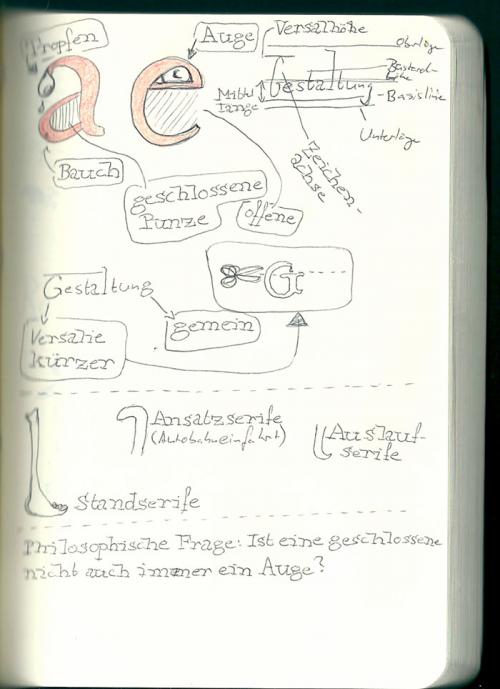 Tropfen
Auge
Versalhöhe
Oberlänge
a e
Gestaltung
Mittellänge
Basislinie
Unterlänge
Zeichen-
achse
Bauch
geschlossene
Punze
offene
G
Gestaltung
Versalie
kürzer
gemein
Ansatzserife
(Autobahneinfahrt)
Auslauf-
serife
Standserife
Philosophische Frage: Ist eine geschlossene
nicht auch immer ein Auge?